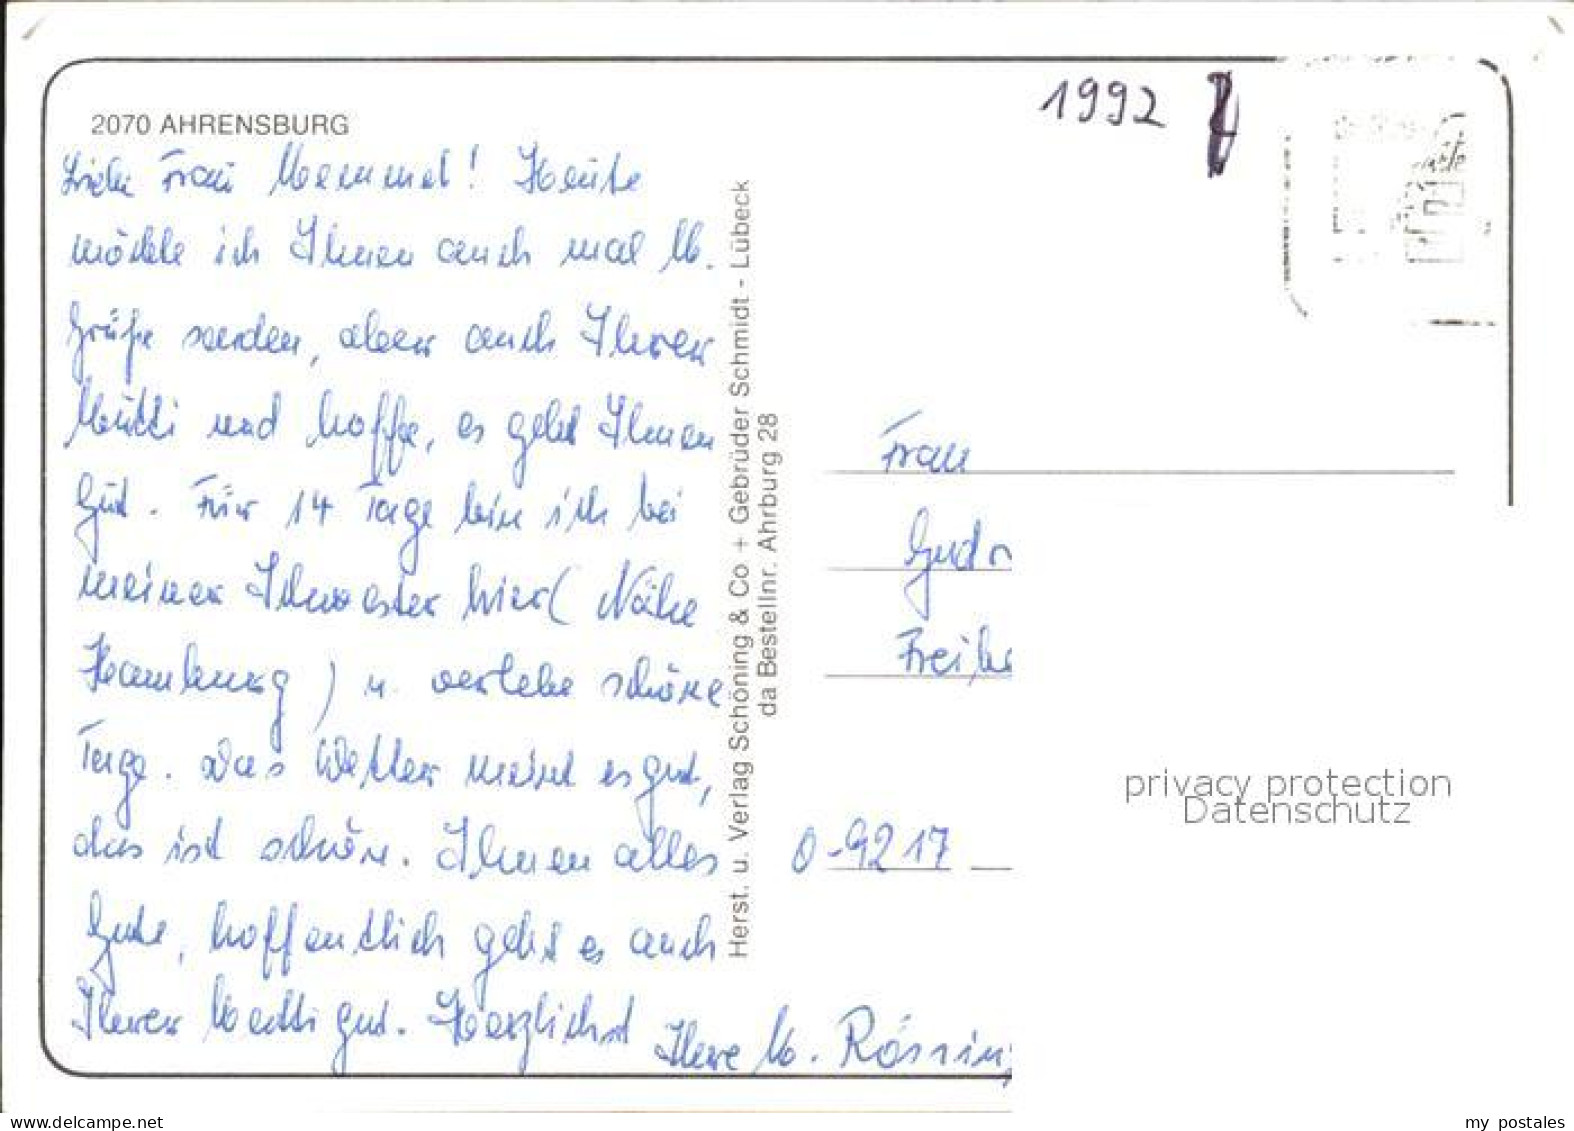 1992
2070 AHRENSBURG
Liebe Frau Memmel! Heute
möchte ich Ihnen auch mal
Grüße senden, aber auch Ihrer
Mutti und hoffe, es geht Ihnen
gut. Für 14 Tage bin ich bei
meiner Schwester hier (Nähe
Hamburg) u. verlebe schöne
Tage. Das Wetter meint es gut,
das ist schön. Ihnen alles
Gute, hoffentlich geht es auch
Ihrer Mutti gut. Herzlichst
Ihre M. Rössin
Herst. u. Verlag Schöning & Co + Gebrüder Schmidt - Lübeck
da Bestellnr. Ahrburg 28
Frau
Gudr
Freibe
O-9217
privacy protection
Datenschutz
www.delcampe.net
my_postales